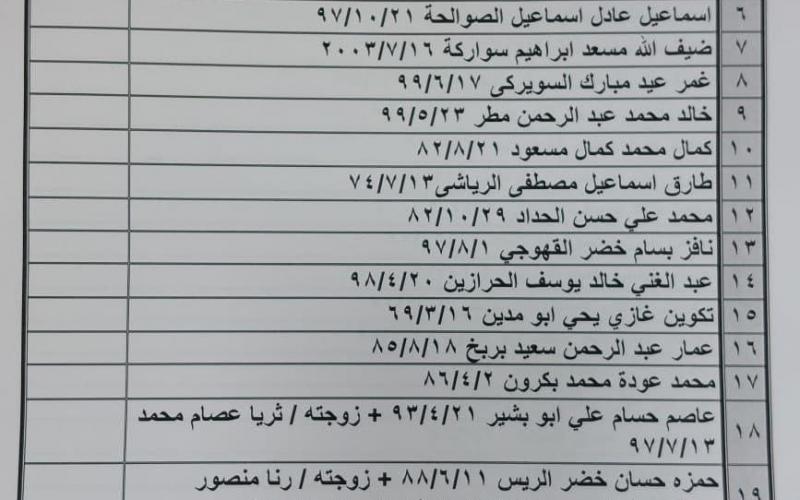 ٦ اسماعيل عادل اسماعيل الصوالحة ٩٧/١٠/٢١
٧ ضيف الله مسعد ابراهيم سواركة ٢٠٠٣/٧/١٦
٨ غمر عيد مبارك السويركى ٩٩/٦/١٧
٩ خالد محمد عبد الرحمن مطر ٩٩/٥/٢٣
١٠ كمال محمد كمال مسعود ٨٢/٨/٢١
١١ طارق اسماعيل مصطفى الرياشى٧٤/٧/١٣
١٢ محمد علي حسن الحداد ٨٢/١٠/٢٩
١٣ نافز بسام خضر القهوجي ٩٧/٨/١
١٤ عبد الغني خالد يوسف الحرازين ٩٨/٤/٢٠
١٥ تكوين غازي يحي ابو مدين ٦٩/٣/١٦
١٦ عمار عبد الرحمن سعيد بربخ ٨٥/٨/١٨
١٧ محمد عودة محمد بكرون ٨٦/٤/٢
١٨ عاصم حسام علي ابو بشير ٩٣/٤/٢١ + زوجته / ثريا عصام محمد
٩٧/٧/١٣
١٩ حمزه حسان خضر الريس ٨٨/٦/١١ + زوجته / رنا منصور